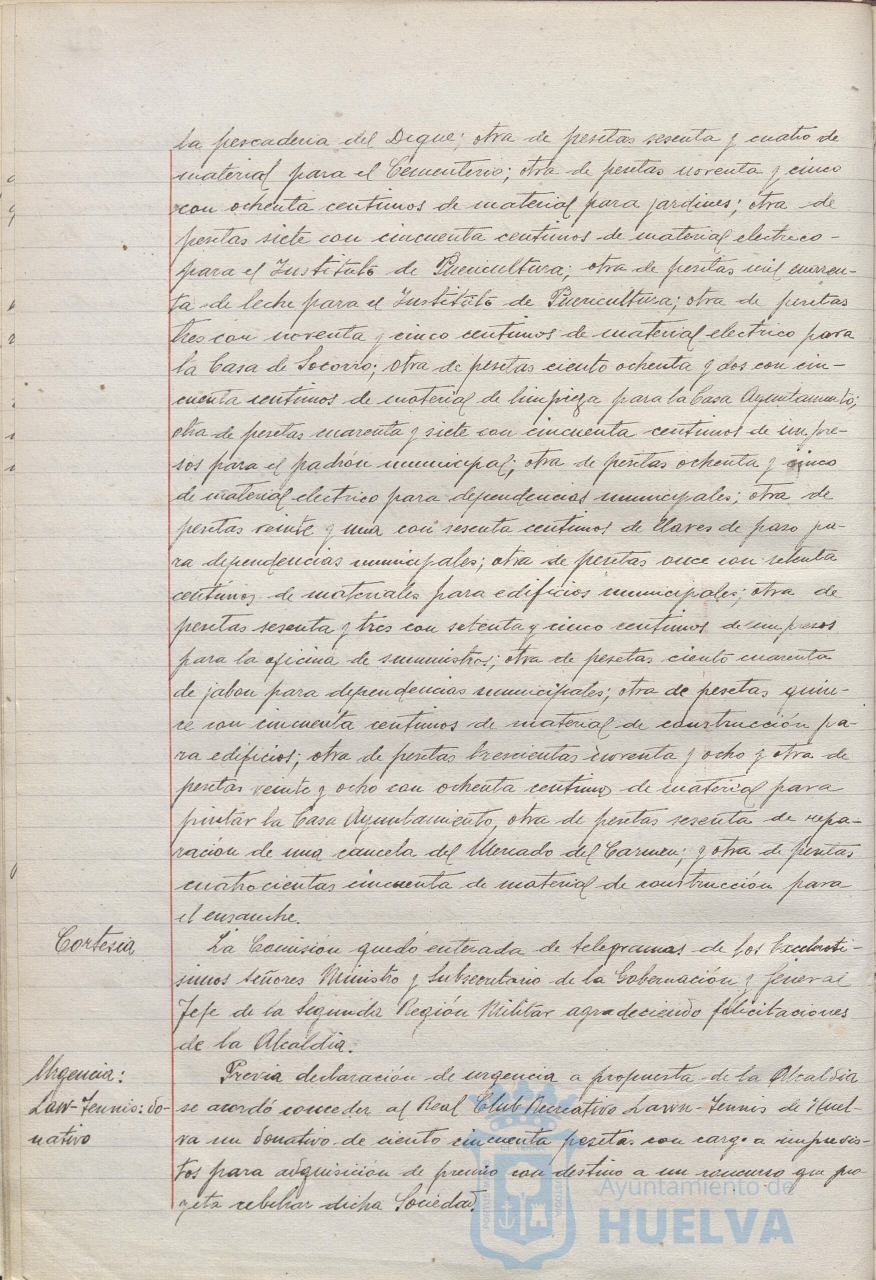 la pescaderia del Dique; otra de pesetas sesenta y cuatro de
material para el Cementerio; otra de pesetas noventa y cinco
con ochenta centimos de material para jardines; otra de
pesetas siete con cincuenta centimos de material electrico
para el Instituto de Puericultura; otra de pesetas mil cuaren-
ta de leche para el Instituto de Puericultura; otra de pesetas
tres con noventa y cinco centimos de material electrico para
la Casa de Socorro; otra de pesetas ciento ochenta y dos con cin-
cuenta centimos de material de limpieza para la Casa Ayuntamiento;
otra de pesetas cuarenta y siete con cincuenta centimos de impre-
sos para el padrón municipal; otra de pesetas ochenta y cinco
de material electrico para dependencias municipales; otra de
pesetas veinte y una con sesenta centimos de llaves de paso pa-
ra dependencias municipales; otra de pesetas once con setenta
centimos de materiales para edificios municipales; otra de
pesetas sesenta y tres con setenta y cinco centimos de impresos
para la oficina de suministros; otra de pesetas ciento cuarenta
de jabon para dependencias municipales; otra de pesetas quin-
ce con cincuenta centimos de material de construcción pa-
ra edificios; otra de pesetas trescientas noventa y ocho y otra de
pesetas veinte y ocho con ochenta centimos de material para
pintar la Casa Ayuntamiento, otra de pesetas sesenta de repa-
ración de una cancela del Mercado del Carmen; y otra de pesetas
cuatrocientas cincuenta de material de construcción para
el ensanche.
Cortesia
La Comisión quedó enterada de telegramas de los Excelenti-
simos Señores Ministro y Subsecretario de la Gobernación y General
Jefe de la Segunda Región Militar agradeciendo felicitaciones
de la Alcaldia.
Urgencia:
Law-Tennis: do-
nativo
Previa declaración de urgencia a propuesta de la Alcaldia
se acordó conceder al Real Club Recreativo Lawn-Tennis de Huel-
va un donativo de ciento cincuenta pesetas con cargo a imprevis-
tos para adquisición de premio con destino a un concurso que pro-
yeta celebrar dicha Sociedad.
Ayuntamiento de
HUELVA